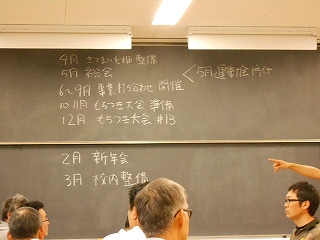 4月 さつまいも畑整備
5月 総会
5月運動会片付
6〜9月 事業打ち合わせ 開催
10.11月 もちつき大会 準備
12月 もちつき大会 #13
2月 新年会
3月 校内整備